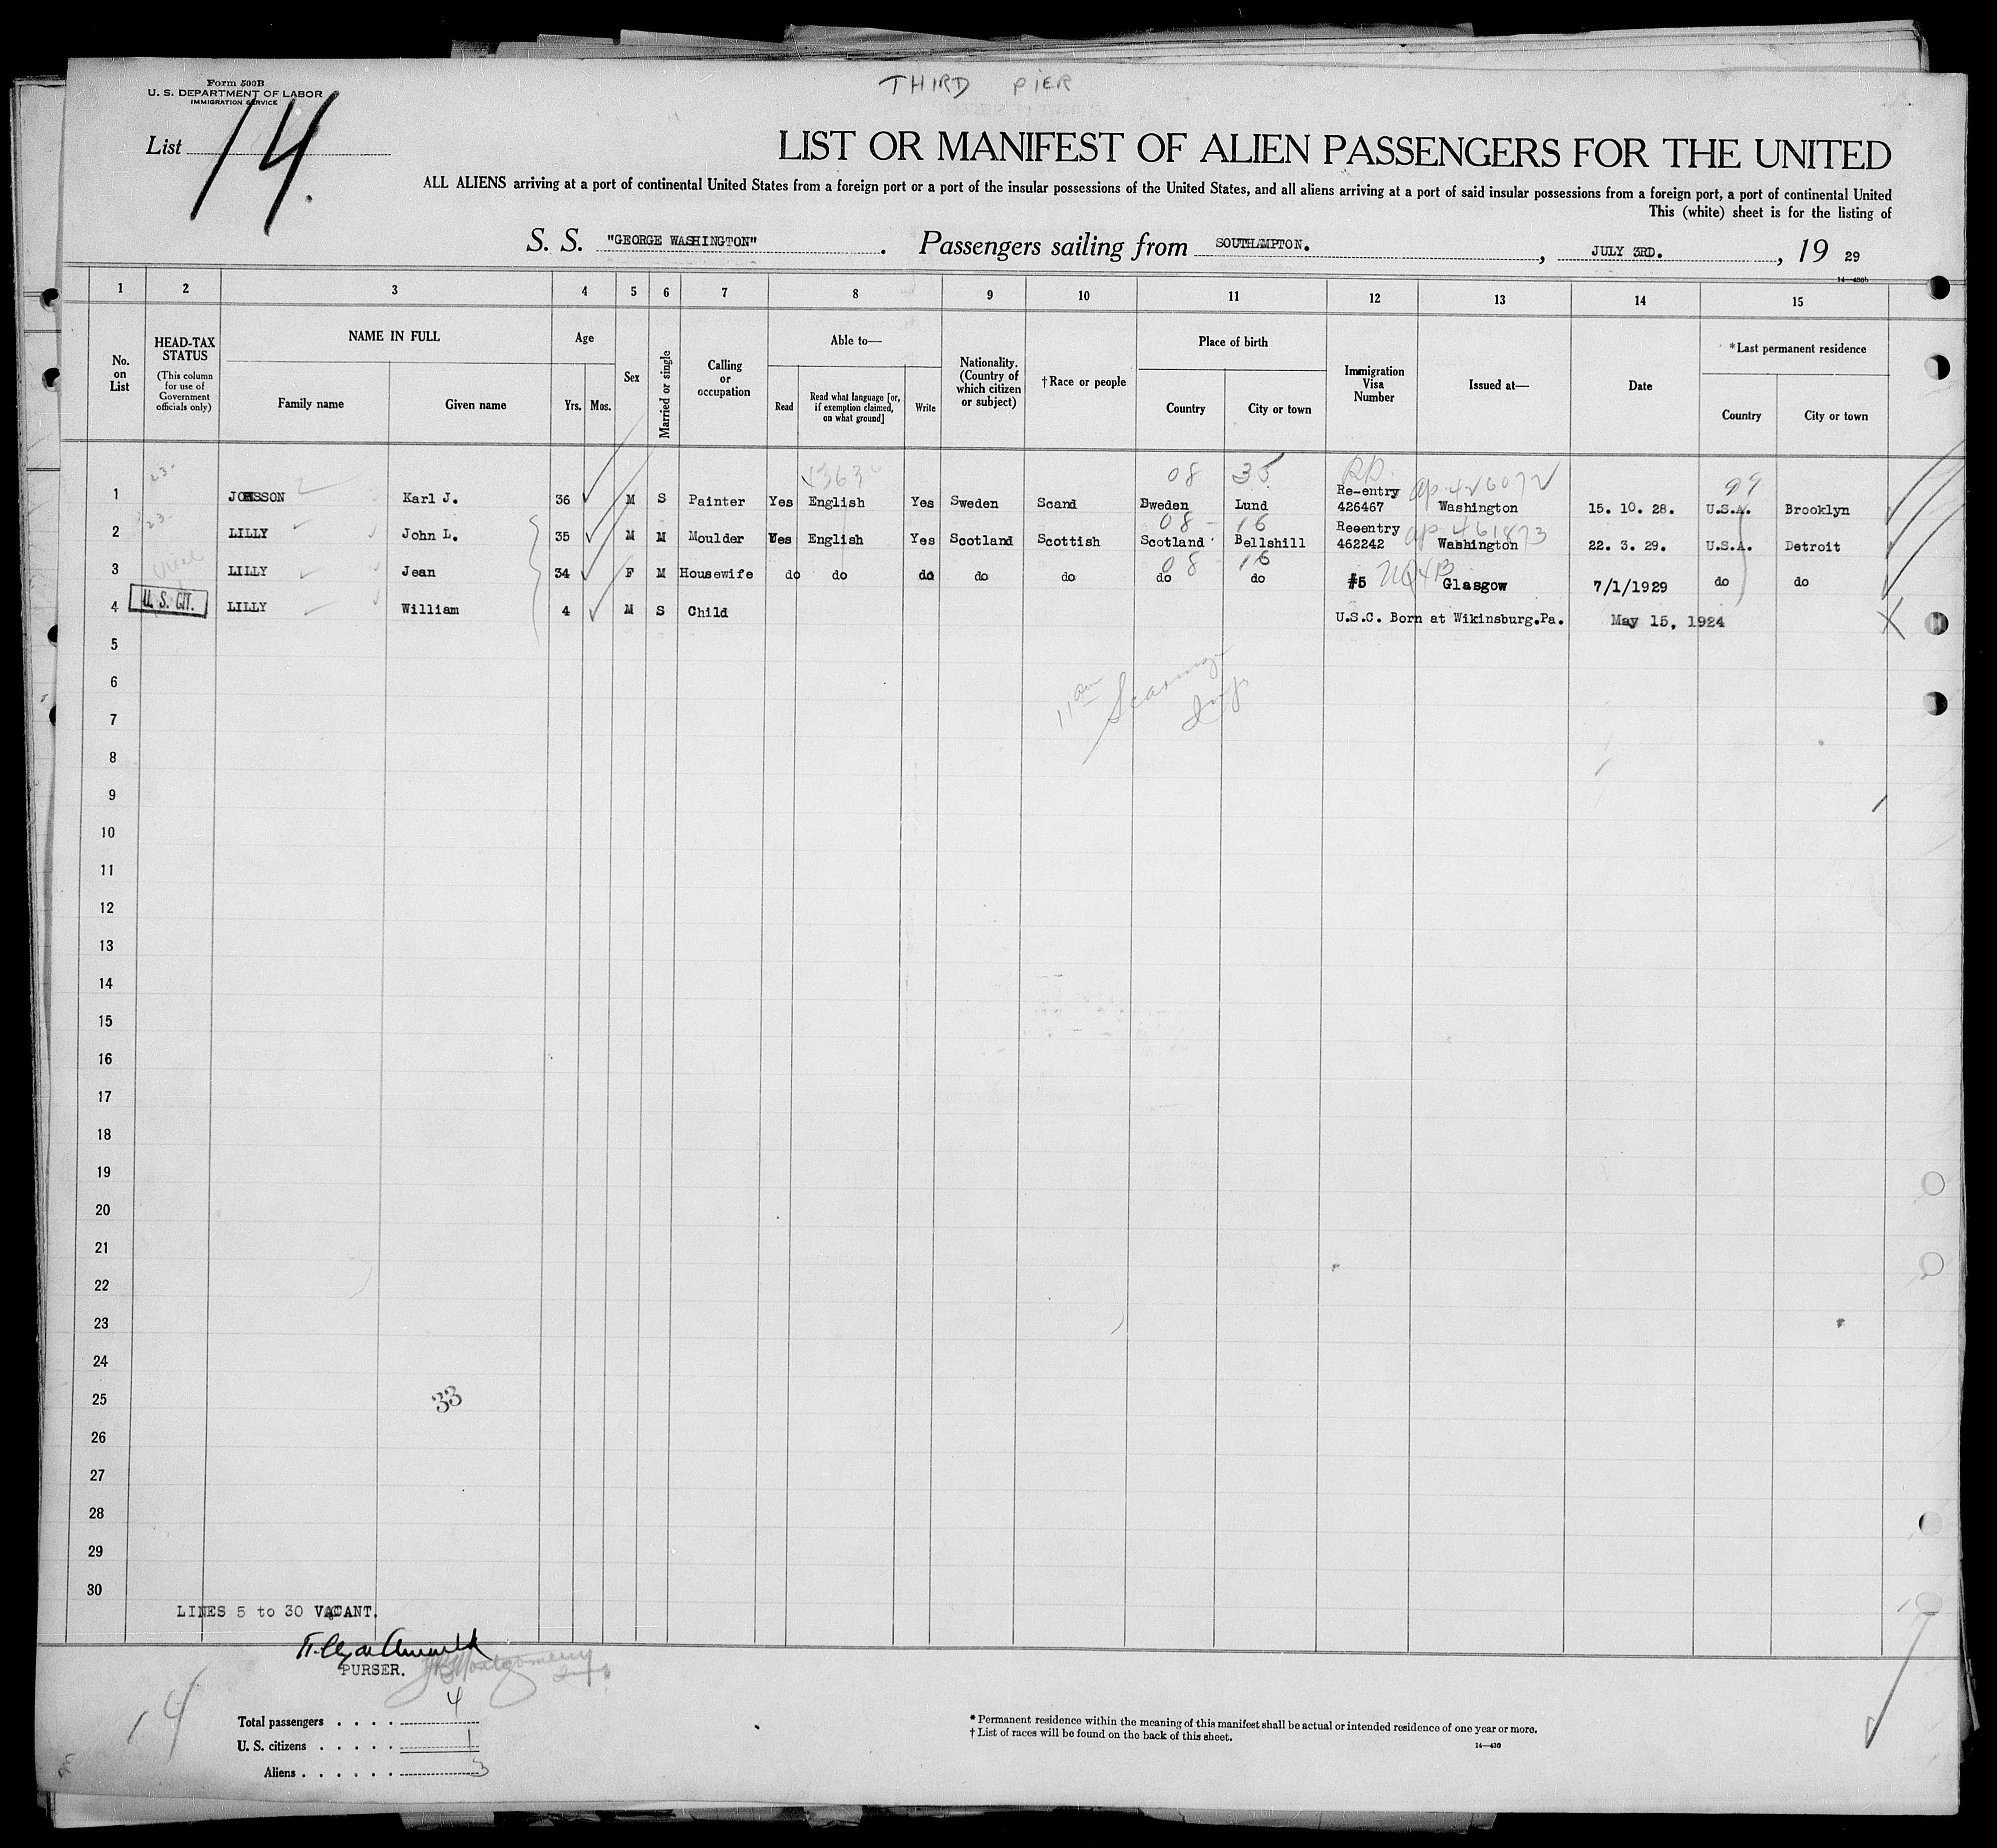 THIRD PIER
Form 500B
U. S. DEPARTMENT OF LABOR
IMMIGRATION SERVICE
List 14.
LIST OR MANIFEST OF ALIEN PASSENGERS FOR THE UNITED
ALL ALIENS arriving at a port of continental United States from a foreign port or a port of the insular possessions of the United States, and all aliens arriving at a port of said insular possessions from a foreign port, a port of continental United
This (white) sheet is for the listing of
S. S. "GEORGE WASHINGTON". Passengers sailing from SOUTHAMPTON. , JULY 3RD. , 19 29
14—430b
1 2 3 4 5 6 7 8 9 10 11 12 13 14 15
No. on List
HEAD-TAX STATUS
(This column for use of Government officials only)
NAME IN FULL
Family name
Given name
Age
Yrs. Mos.
Sex
Married or single
Calling or occupation
Able to—
Read
Read what language [or, if exemption claimed, on what ground]
Write
Nationality. (Country of which citizen or subject)
†Race or people
Place of birth
Country
City or town
Immigration Visa Number
Issued at—
Date
*Last permanent residence
Country
City or town
23- 08 35 99
1 Karl J. 36 M S Painter Yes English Yes Sweden Scand Sweden Lund Re-entry 426467 Washington 15. 10. 28. U.S.A. Brooklyn
23- 08 - 16 461873
2 LILLY John L. 35 M M Moulder Yes English Yes Scotland Scottish Scotland Bellshill Reeentry 462242 Washington 22. 3. 29. U.S.A. Detroit
08 - 16
3 LILLY Jean 34 F M Housewife do do do do do do do #5 Glasgow 7/1/1929 do do
4 U. S. CIT. LILLY William 4 M S Child U.S.C. Born at Wikinsburg.Pa. May 15, 1924
5
6
7
8
9
10
11
12
13
14
15
16
17
18
19
20
21
22
23
24
25
33
26
27
28
29
30
LINES 5 to 30 VACANT.
PURSER.
Montgomery
14
Total passengers . . . . 4
U. S. citizens . . . . . 1
Aliens . . . . . . 3
* Permanent residence within the meaning of this manifest shall be actual or intended residence of one year or more.
† List of races will be found on the back of this sheet.
14—430